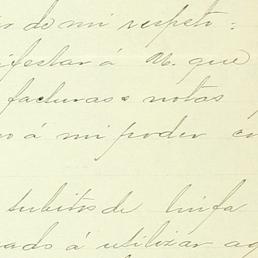 de mi respeto:
ifestar á U. que
facturas e notas
á mi poder
subitos de linfa
á utilizar